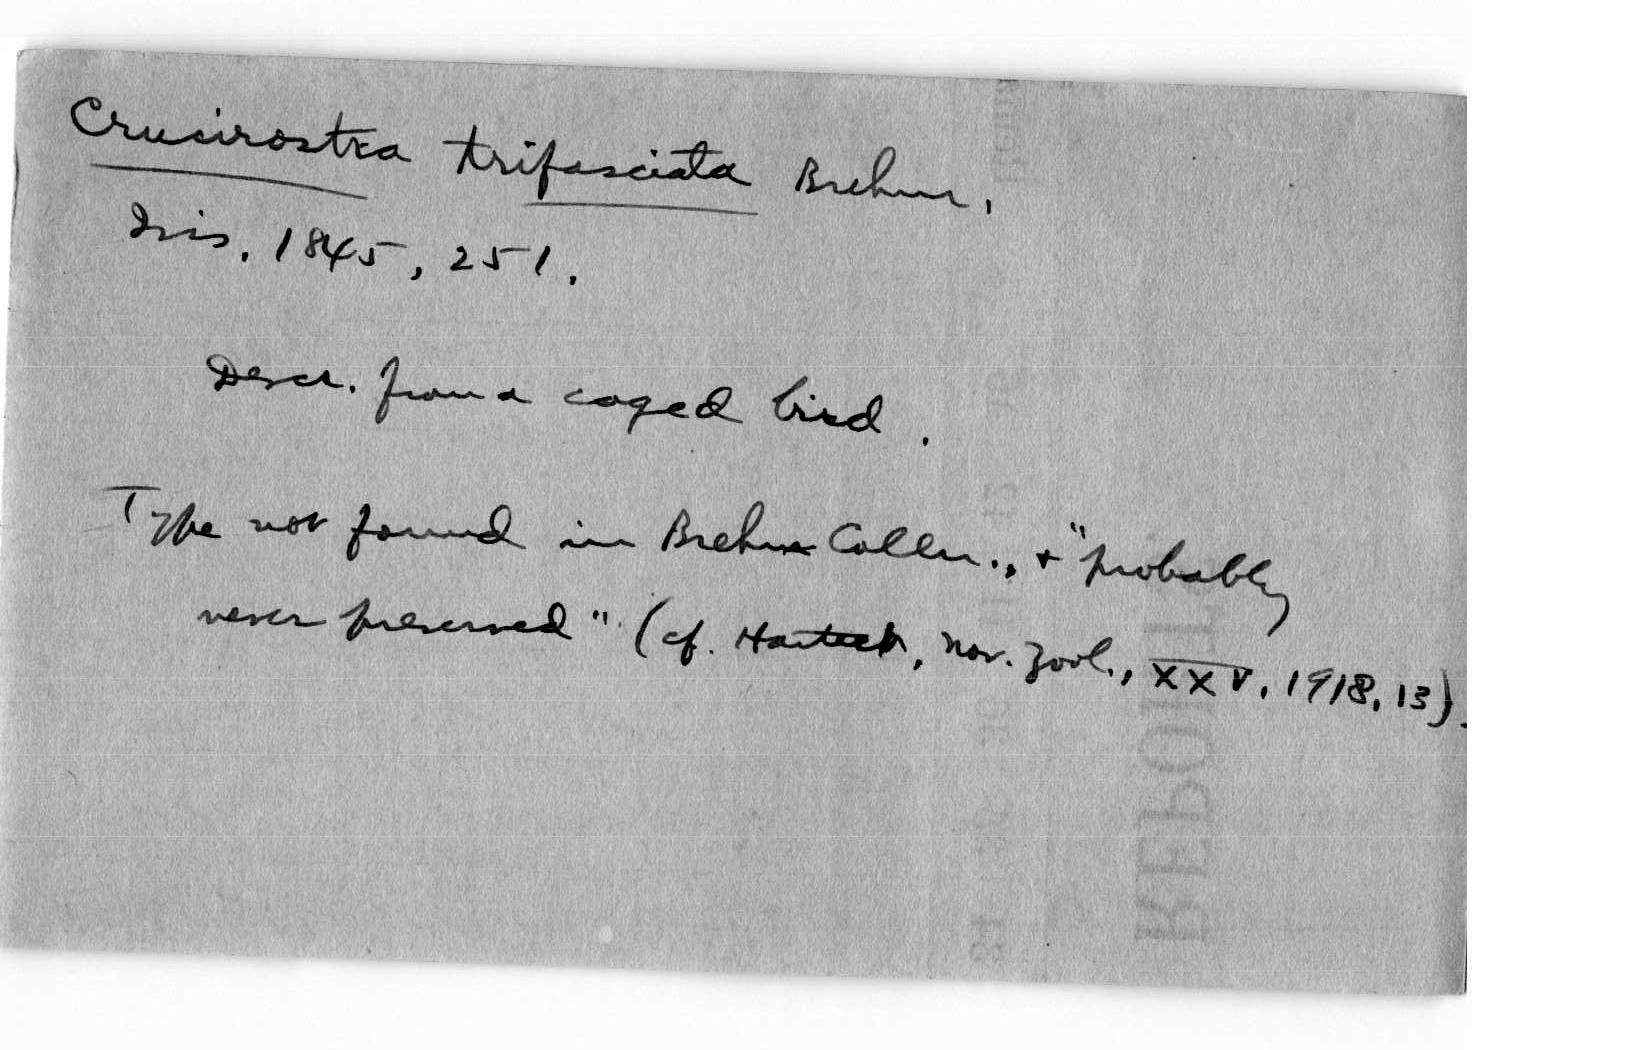 Crucirostra trifasciata Brehm,
Isis, 1845, 251.
Descr. from a caged bird.
Type not found in Brehm Colln., + "probably
never preserved" (cf. Hartert, Nov. Zool., XXV, 1918, 13).
REPORT